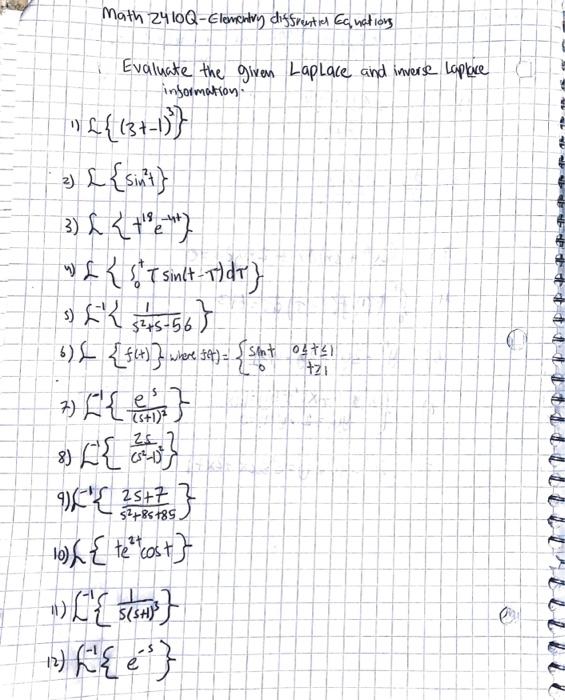 Math 2410Q - Elementry diffrentiel Equations
Evaluate the given Laplace and inverse Laplace
information.
1) ℒ{(3t-1)³}
2) ℒ{sin²t}
3) ℒ{t¹⁸e⁻⁴ᵗ}
4) ℒ{∫₀ᵗ τ sin(t-τ)dτ}
5) ℒ⁻¹{1/(s²+s-56)}
6) ℒ{f(t)} where f(t) = { sint 0≤t≤1
0 t≥1
7) ℒ⁻¹{e^s/(s+1)²}
8) ℒ⁻¹{2s/(s²-1)²}
9) ℒ⁻¹{(2s+7)/(s²+8s+85)}
10) ℒ{te²ᵗcost}
11) ℒ⁻¹{1/(s(s+1)³)}
12) ℒ⁻¹{e⁻ˢ}